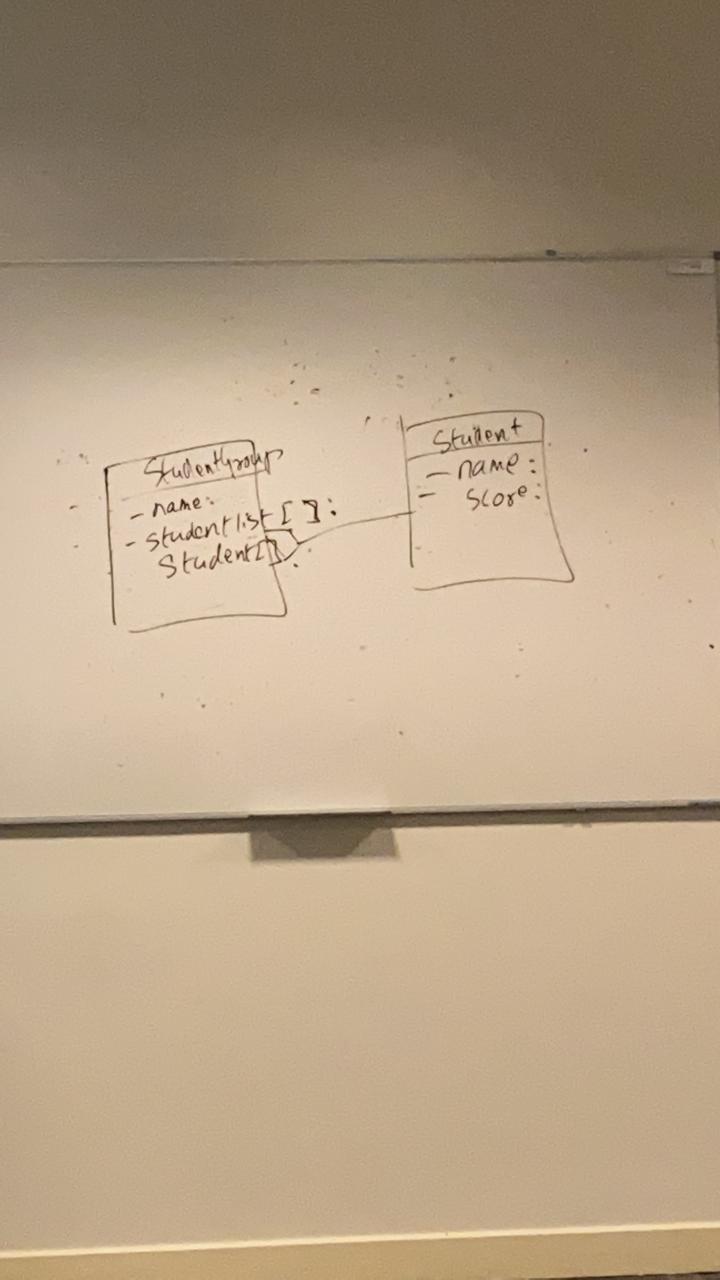 StudentGroup
- name:
- studentlist[]:
Student[]
Student
- name:
- score: